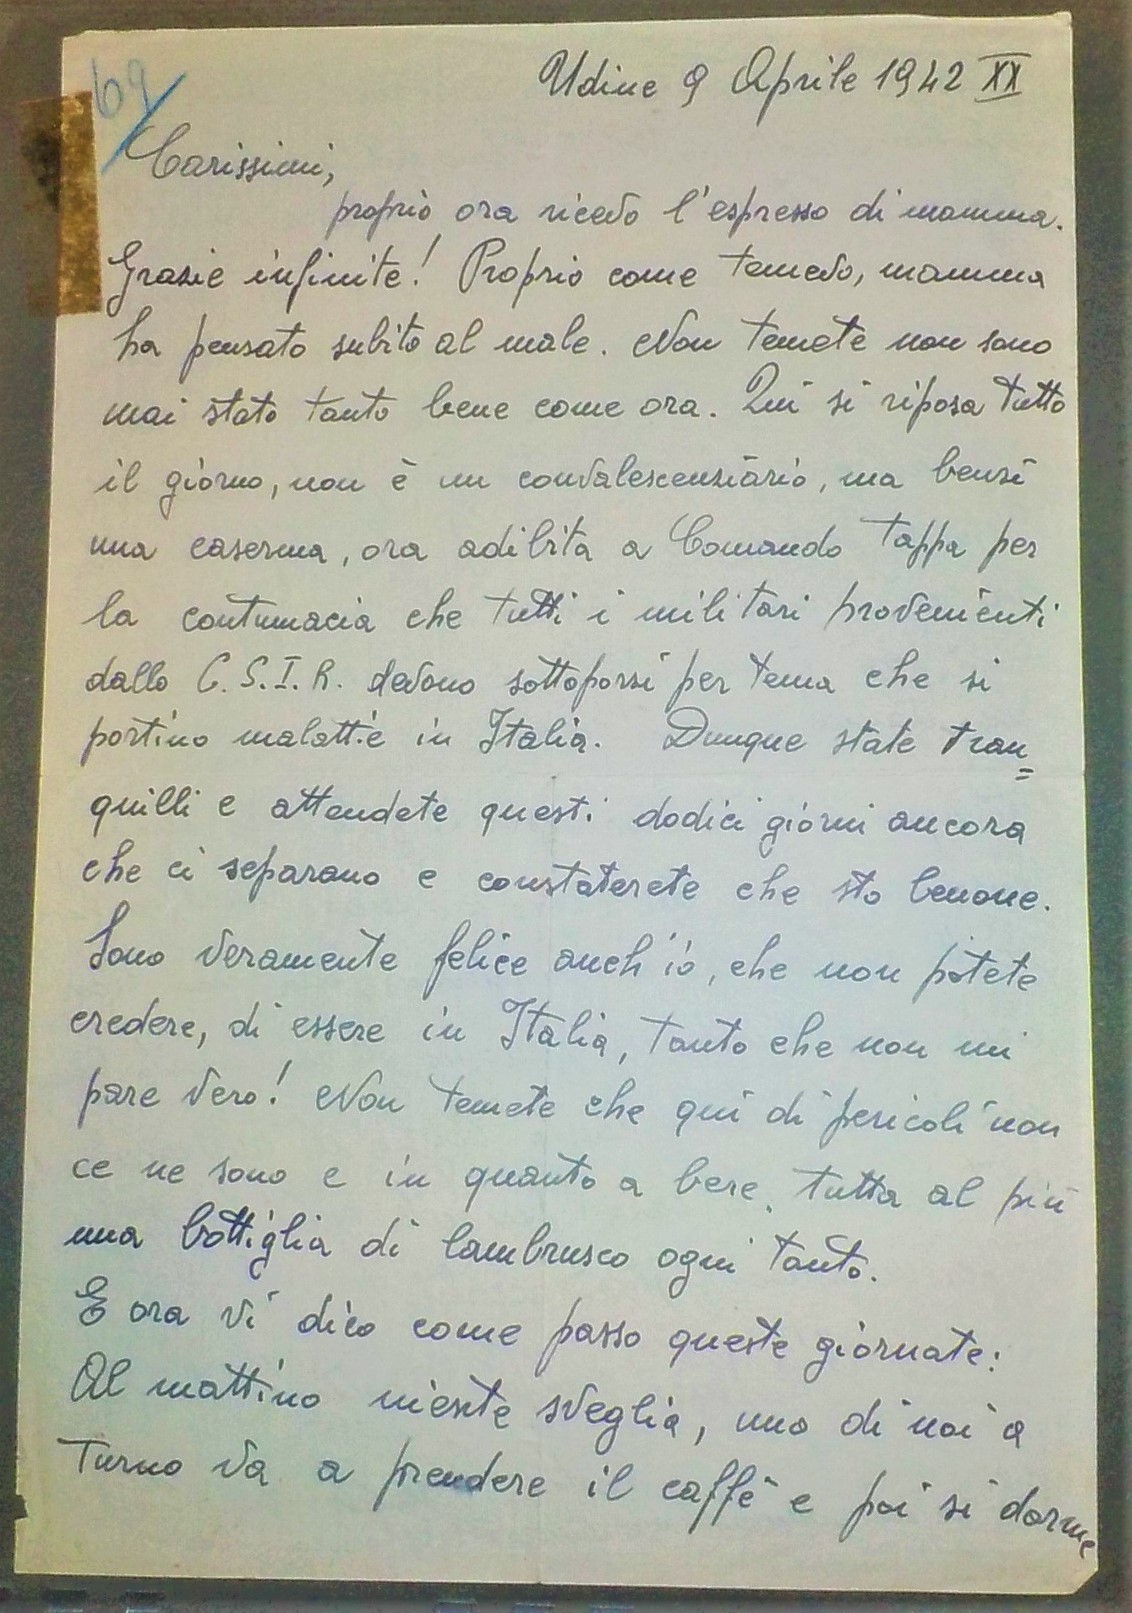 69
Udine 9 Aprile 1942 XX
Carissimi,
proprio ora ricevo l'espresso di mamma.
Grazie infinite! Proprio come temevo, mamma
ha pensato subito al male. Non temete non sono
mai stato tanto bene come ora. Qui si riposa tutto
il giorno, non è un convalescenziario, ma bensì
una caserma, ora adibita a Comando Tappa per
la contumacia che tutti i militari provenienti
dallo C.S.I.R. devono sottoporsi per tema che si
portino malattie in Italia. Dunque state tran=
quilli e attendete questi dodici giorni ancora
che ci separano e constaterete che sto benone.
Sono veramente felice anch'io, che non potete
credere, di essere in Italia, tanto che non mi
pare vero! Non temete che qui di pericoli non
ce ne sono e in quanto a bere, tutta al più
una bottiglia di lambrusco ogni tanto.
E ora vi dico come passo queste giornate:
Al mattino niente sveglia, uno di noi a
turno va a prendere il caffè e poi si dorme